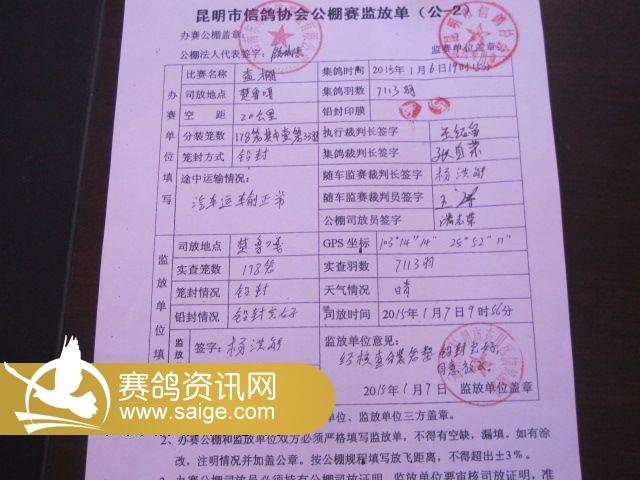 昆明市信鸽协会公棚赛监放单（公-2）
办赛公棚盖章：
监赛单位盖章：
公棚法人代表签字：
办赛单位填写
比赛名称 查棚 集鸽时间 2015年1月6日19时15分
司放地点 集鸽羽数 7113羽
空 距 20公里 铅封印膜
分装笼数 执行裁判长签字
笼封方式 铅封 集鸽裁判长签字
途中运输情况： 随车监赛裁判长签字 杨洪
汽车运输正常 随车监赛裁判员签字
公棚司放员签字
监放单位填
司放地点 GPS 坐标 103°14'14" 25°52'11"
实查笼数 178笼 实查羽数 7113羽
笼封情况 铅封 天气情况 晴
铅封情况 铅封完好 司放时间 2015年1月7日9时56分
监放 签字：杨洪 监放单位意见：
经核查 铅封完好,
同意放飞
2015年1月7日 监放单位盖章
单位、监放单位三方盖章。
2、办赛公棚和监放单位双方必须严格填写监放单，不得有空缺，漏填，如有涂
改，注明情况并加盖公章。按公棚规程填写放飞距离，不得超出±3%。
3、办赛公棚司放员必须持有公棚司放证明，监放单位要审核司放证明，准
赛鸽资讯网
www.saige.com